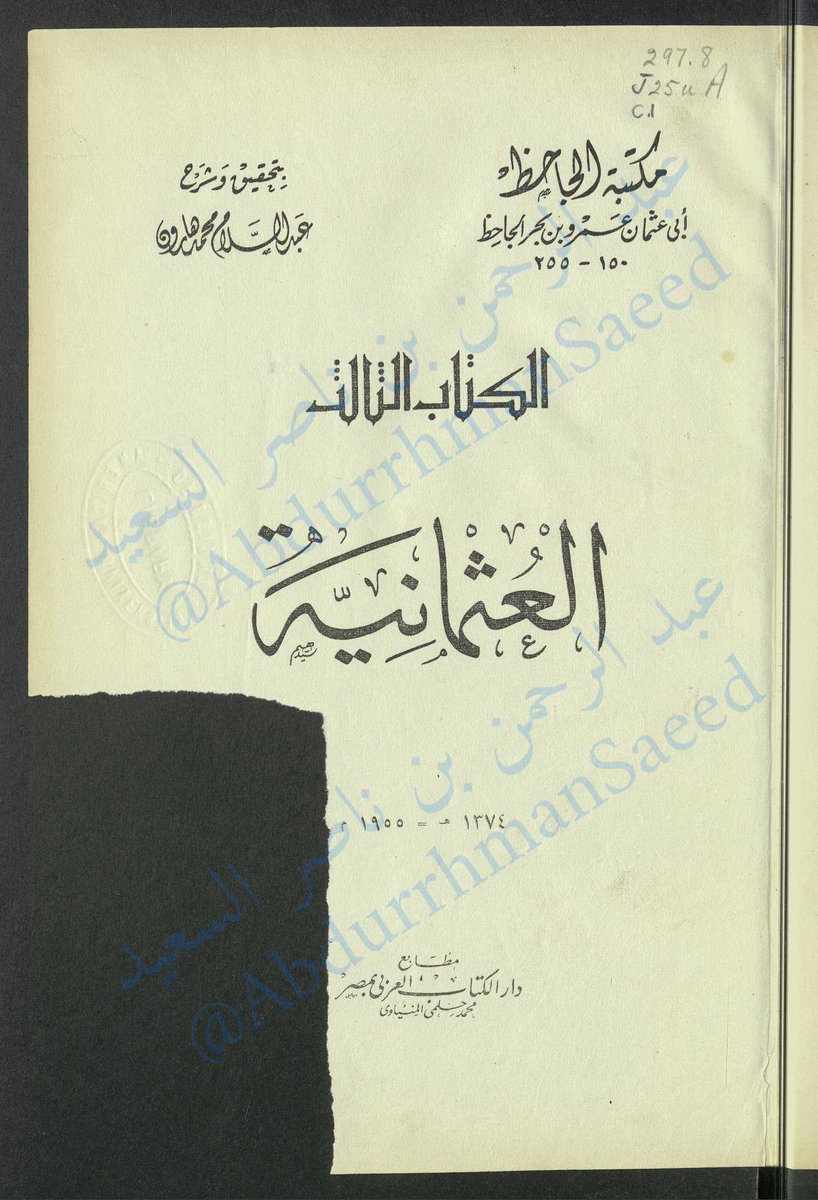 297.8
J25uA
C.1
مكتبة الجاحظ
أبى عثمان عمرو بن بحر الجاحظ
١٥٠ - ٢٥٥
بتحقيق وشرح
عبد السلام محمد هارون
الكتاب الثالث
العُثمانِيَّة
١٣٧٤ هـ = ١٩٥٥ م
مطابع
دار الكتاب العربى بمصر
محمد حلمى المنياوى
عبد الرحمن بن ناصر السعيد
@AbdurrhmanSaeed
عبد الرحمن بن ناصر السعيد
@AbdurrhmanSaeed